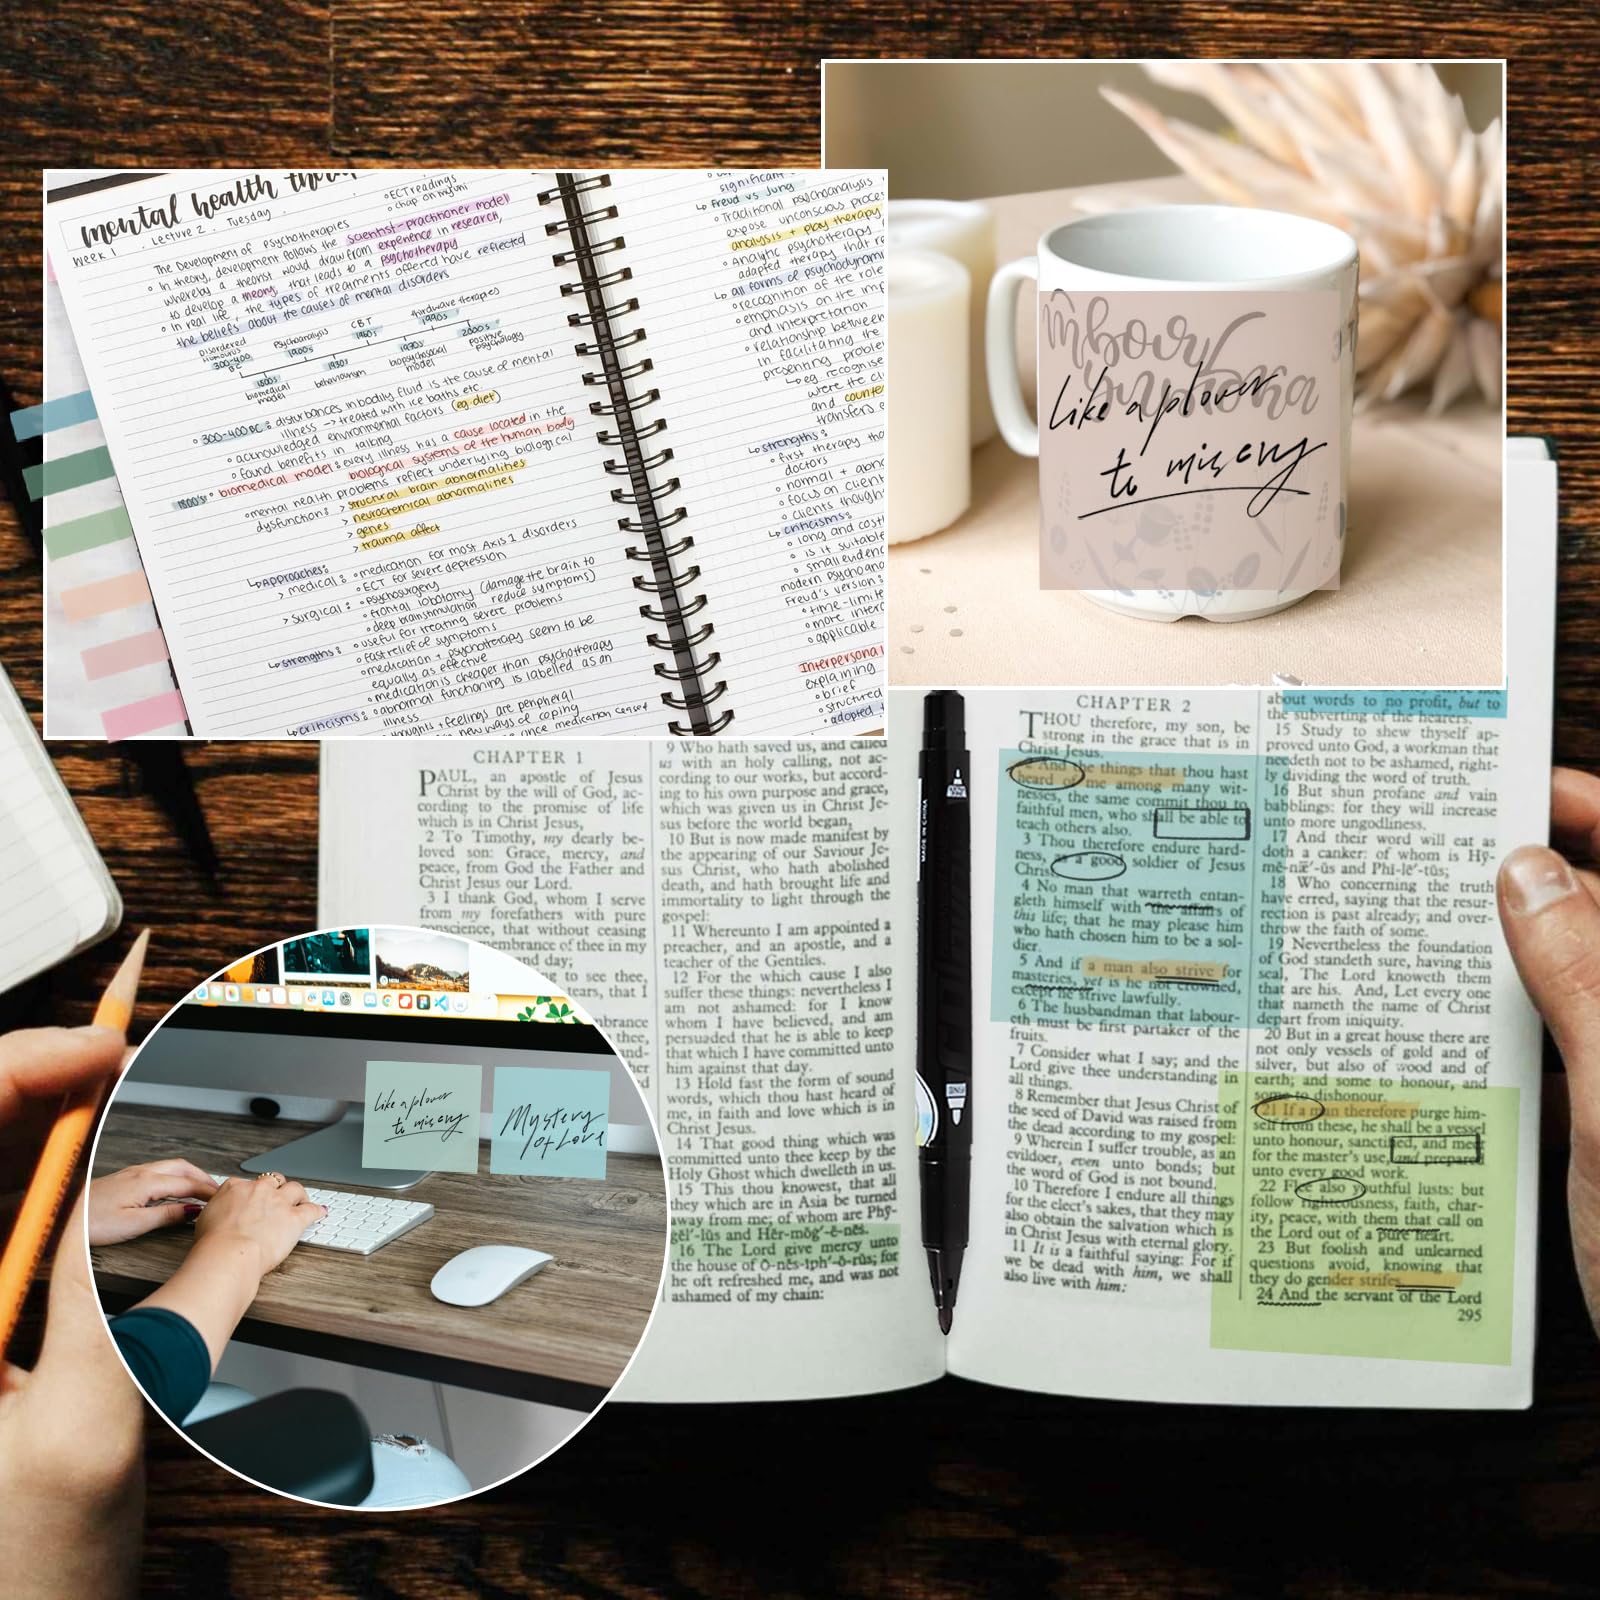 mental health
Week 1 . Lecture 2 . Tuesday
ECT readings
The Development of Psychotherapies
In theory, development follows the scientist-practitioner model
whereby a theorist would draw from experience in research,
to develop a theory, that leads to a psychotherapy
In real life, the types of treatments offered have reflected
the beliefs about the causes of mental disorders
Disordered humours
300-400 BC
1800s
biomedical model
Psychoanalysis
1900s
1930s
behaviourism
CBT
1960s
1970s
biopsychosocial model
thirdwave therapies
1990s
2000s
positive psychology
300-400 BC: disturbances in bodily fluid is the cause of mental
illness → treated with ice baths etc.
acknowledged environmental factors (eg. diet)
found benefits in talking
1800's: biomedical model: every illness has a cause located in the
biological systems of the human body
mental health problems reflect underlying biological
dysfunction: > structural brain abnormalities
> neurochemical abnormalities
> genes
> trauma affect
Approaches:
> medical: medication for most Axis 1 disorders
ECT for severe depression
> surgical: psychosurgery
frontal lobotomy (damage the brain to
deep brain stimulation reduce symptoms)
strengths: useful for treating severe problems
fast relief of symptoms
medication + psychotherapy seem to be
equally as effective
medication is cheaper than psychotherapy
criticisms: abnormal functioning is labelled as an
illness
thoughts + feelings are peripheral
new ways of coping
once medication ceased
significant
Freud vs Jung
Traditional psychoanalysis
expose unconscious
analysis + play therapy
Analytic psychotherapy
adapted therapy that
all forms of
recognition of the role
emphasis on the
and interpretation
relationship between
in facilitating the
presenting
eg. recognise
were the
and
strengths:
first therapy
doctors
normal +
focus on client
clients
criticisms:
long and
is it suitable
small
modern
Freud's version:
more
applicable
explaining
brief
structured
adopted
Like a plover
to misery
CHAPTER 1
PAUL, an apostle of Jesus
Christ by the will of God, ac-
cording to the promise of life
which is in Christ Jesus,
2 To Timothy, my dearly be-
loved son: Grace, mercy, and
peace, from God the Father and
Christ Jesus our Lord.
3 I thank God, whom I serve
from my forefathers with pure
conscience, that without ceasing
remembrance of thee in my
and day;
to see thee,
tears, that I
9 Who hath saved us, and called
us with an holy calling, not ac-
cording to our works, but accord-
ing to his own purpose and grace,
which was given us in Christ Je-
sus before the world began,
10 But is now made manifest by
the appearing of our Saviour Je-
sus Christ, who hath abolished
death, and hath brought life and
immortality to light through the
gospel:
11 Whereunto I am appointed a
preacher, and an apostle, and a
teacher of the Gentiles.
12 For the which cause I also
suffer these things: nevertheless I
am not ashamed: for I know
whom I have believed, and am
persuaded that he is able to keep
that which I have committed unto
him against that day.
13 Hold fast the form of sound
words, which thou hast heard of
me, in faith and love which is in
Christ Jesus.
14 That good thing which was
committed unto thee keep by the
Holy Ghost which dwelleth in us.
15 This thou knowest, that all
they which are in Asia be turned
away from me; of whom are Phȳ-
gĕl′-lŭs and Hĕr-mŏg′-ĕ-nēs.
16 The Lord give mercy unto
the house of Ŏ-nĕs-ĭph′-ŏ-rŭs; for
he oft refreshed me, and was not
ashamed of my chain:
MADE IN CHINA
CHAPTER 2
THOU therefore, my son, be
strong in the grace that is in
Christ Jesus.
2 And the things that thou hast
heard of me among many wit-
nesses, the same commit thou to
faithful men, who shall be able to
teach others also.
3 Thou therefore endure hard-
ness, as a good soldier of Jesus
Christ.
4 No man that warreth entan-
gleth himself with the affairs of
this life; that he may please him
who hath chosen him to be a sol-
dier.
5 And if a man also strive for
masteries, yet is he not crowned,
except he strive lawfully.
6 The husbandman that labour-
eth must be first partaker of the
fruits.
7 Consider what I say; and the
Lord give thee understanding in
all things.
8 Remember that Jesus Christ of
the seed of David was raised from
the dead according to my gospel:
9 Wherein I suffer trouble, as an
evildoer, even unto bonds; but
the word of God is not bound.
10 Therefore I endure all things
for the elect's sakes, that they may
also obtain the salvation which is
in Christ Jesus with eternal glory.
11 It is a faithful saying: For if
we be dead with him, we shall
also live with him:
about words to no profit, but to
the subverting of the hearers.
15 Study to shew thyself ap-
proved unto God, a workman that
needeth not to be ashamed, right-
ly dividing the word of truth.
16 But shun profane and vain
babblings: for they will increase
unto more ungodliness.
17 And their word will eat as
doth a canker: of whom is Hȳ-
mĕ-næ′-ŭs and Phĭ-lē′-tŭs;
18 Who concerning the truth
have erred, saying that the resur-
rection is past already; and over-
throw the faith of some.
19 Nevertheless the foundation
of God standeth sure, having this
seal, The Lord knoweth them
that are his. And, Let every one
that nameth the name of Christ
depart from iniquity.
20 But in a great house there are
not only vessels of gold and of
silver, but also of wood and of
earth; and some to honour, and
some to dishonour.
21 If a man therefore purge him-
self from these, he shall be a vessel
unto honour, sanctified, and meet
for the master's use, and prepared
unto every good work.
22 Flee also youthful lusts: but
follow righteousness, faith, char-
ity, peace, with them that call on
the Lord out of a pure heart.
23 But foolish and unlearned
questions avoid, knowing that
they do gender strifes.
24 And the servant of the Lord
295
Like a plover
to misery
Mystery
of Love